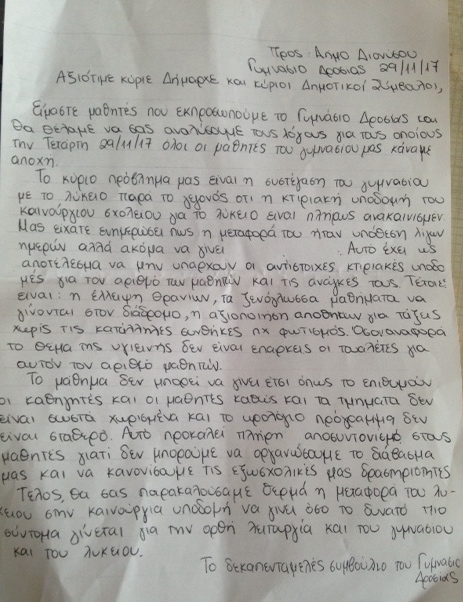 Προς: Δήμο Διονύσου
Γυμνάσιο Δροσιάς 29/11/17
Αξιότιμε κύριε Δήμαρχε και κύριοι Δημοτικοί Σύμβουλοι,
Είμαστε μαθητές που εκπροσωπούμε το Γυμνάσιο Δροσιάς και
θα θέλαμε να σας αναλύσουμε τους λόγους για τους οποίους
την Τετάρτη 29/11/17 όλοι οι μαθητές του γυμνασίου μας κάναμε
αποχή.
Το κύριο πρόβλημα μας είναι η συστέγαση του γυμνασίου
με το λύκειο παρά το γεγονός ότι η κτιριακή υποδομή του
καινούργιου σχολείου για το λύκειο είναι πλήρως ανακαινισμένη.
Μας είχατε ενημερώσει πως η μεταφορά του ήταν υπόθεση λίγων
ημερών αλλά ακόμα να γίνει. Αυτό έχει ως
αποτέλεσμα να μην υπάρχουν οι αντίστοιχες κτιριακές υποδο
μές για τον αριθμό των μαθητών και τις ανάγκες τους. Τέτοιες
είναι: η έλλειψη θρανίων, τα ξενόγλωσσα μαθήματα να
γίνονται στον διάδρομο, η αξιοποίηση αποθηκών για τάξεις
χωρίς τις κατάλληλες συνθήκες πχ φωτισμός. Όσον αναφορά
το θέμα της υγιεινής δεν είναι επαρκείς οι τουαλέτες για
αυτόν τον αριθμό μαθητών.
Το μάθημα δεν μπορεί να γίνει έτσι όπως το επιθυμούν
οι καθηγητές και οι μαθητές καθώς και τα τμήματα δεν
είναι σωστά χωρισμένα και το ωρολόγιο πρόγραμμα δεν
είναι σταθερό. Αυτό προκαλεί πλήρη αποσυντονισμό στους
μαθητές γιατί δεν μπορούμε να οργανώσουμε το διάβασμα
μας και να κανονίσουμε τις εξωσχολικές μας δραστηριότητες
Τέλος, θα σας παρακαλούσαμε θερμά η μεταφορά του λυ-
κείου στην καινούργια υποδομή να γίνει όσο το δυνατό πιο
σύντομα γίνεται για την ορθή λειτουργία και του γυμνασίου
και του λυκείου.
Το δεκαπενταμελές συμβούλιο του Γυμνασίου
Δροσιάς